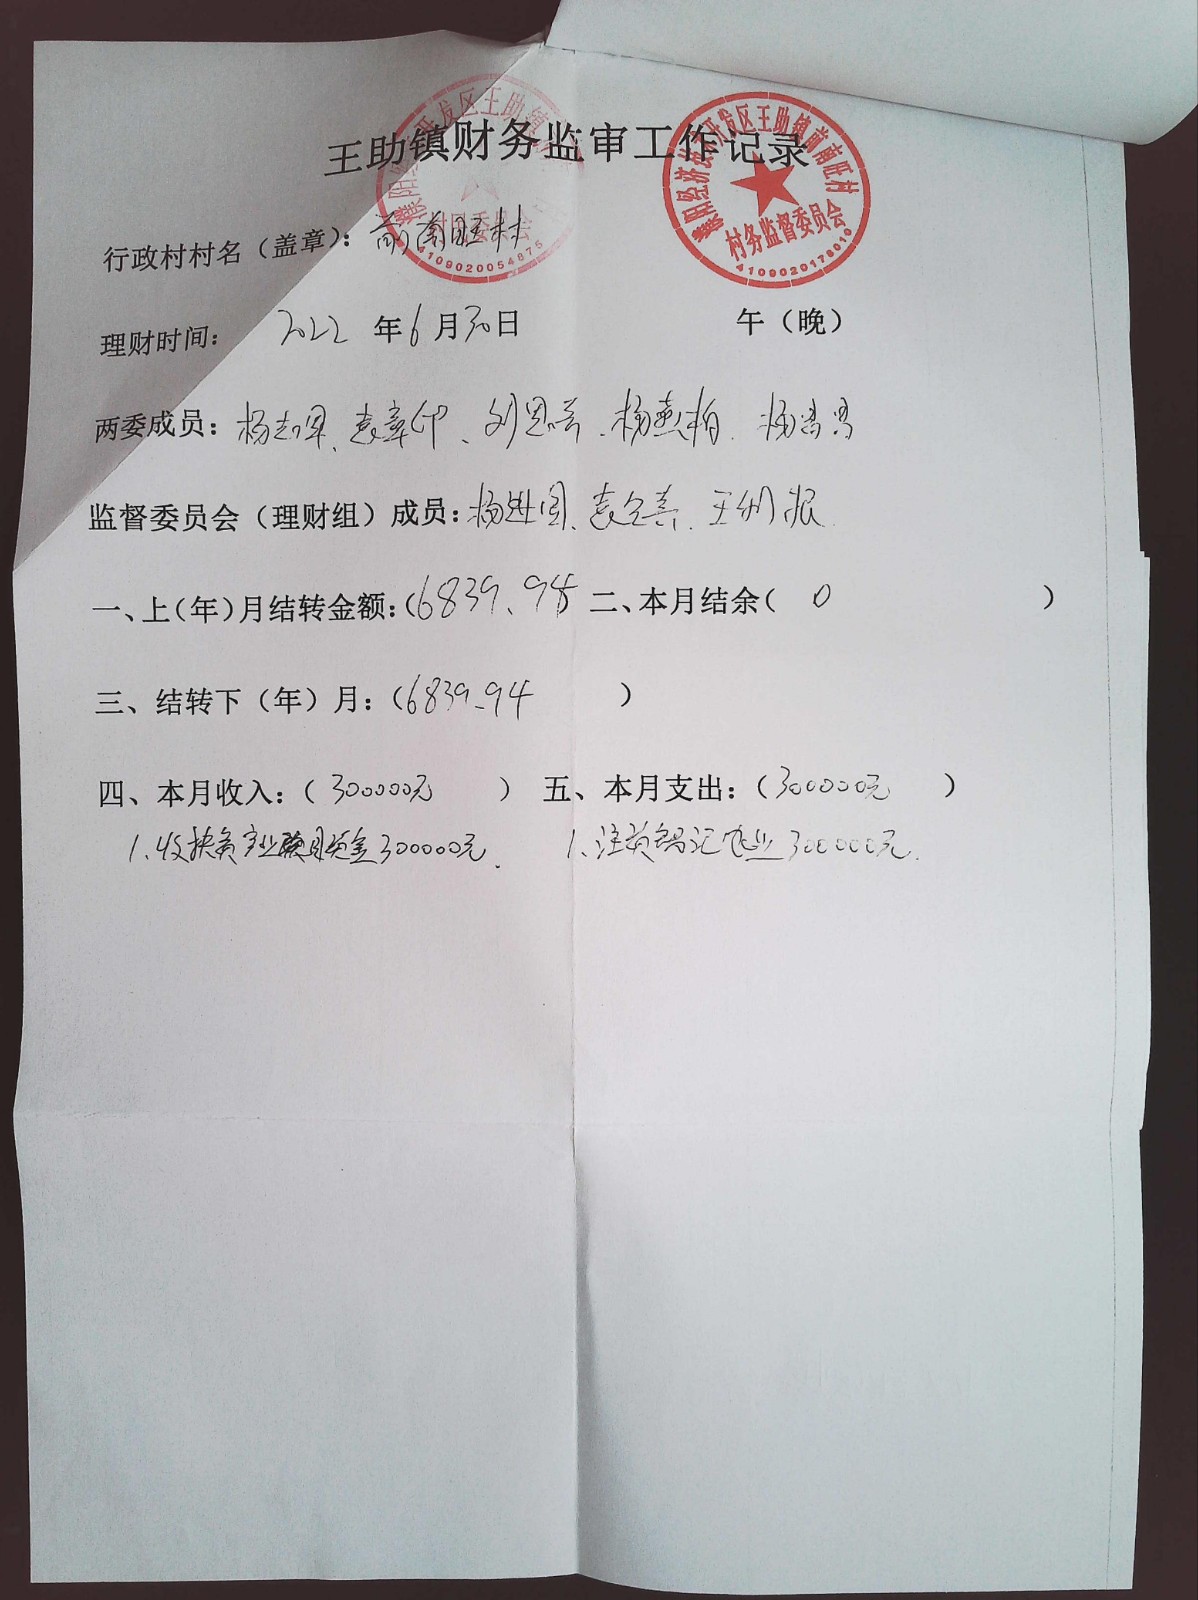 王助镇财务监审工作记录
行政村村名（盖章）：前南旺村
村民委员会
4109020054875
濮阳经济技术开发区王助镇前南旺村
村务监督委员会
4109020178010
理财时间： 2022 年 6 月 30 日 午（晚）
两委成员：杨志军、袁章印、刘思芳、杨燕梅、杨
监督委员会（理财组）成员：杨进国、袁全喜、王利振
一、上（年）月结转金额：（6839.94） 二、本月结余（ 0 ）
三、结转下（年）月：（6839.94 ）
四、本月收入：（ 300000元 ） 五、本月支出：（300000元 ）
1、收扶贫产业项目资金300000元. 1、注资 汇农业300000元.